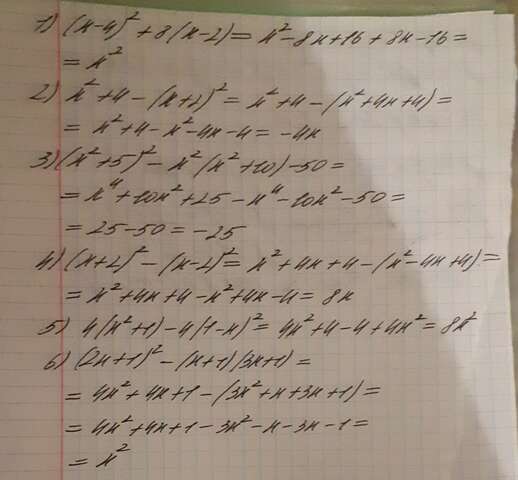 1) (x-4)² + 8(x-2) = x² - 8x + 16 + 8x - 16 =
= x²
2) x² + 4 - (x+2)² = x² + 4 - (x² + 4x + 4) =
= x² + 4 - x² - 4x - 4 = -4x
3) (x² + 5)² - x²(x² + 10) - 50 =
= x⁴ + 10x² + 25 - x⁴ - 10x² - 50 =
= 25 - 50 = -25
4) (x+2)² - (x-2)² = x² + 4x + 4 - (x² - 4x + 4) =
= x² + 4x + 4 - x² + 4x - 4 = 8x
5) 4(x² + 1) - 4(1-x)² = 4x² + 4 - 4 + 4x² = 8x²
6) (2x+1)² - (x+1)(3x+1) =
= 4x² + 4x + 1 - (3x² + x + 3x + 1) =
= 4x² + 4x + 1 - 3x² - x - 3x - 1 =
= x²